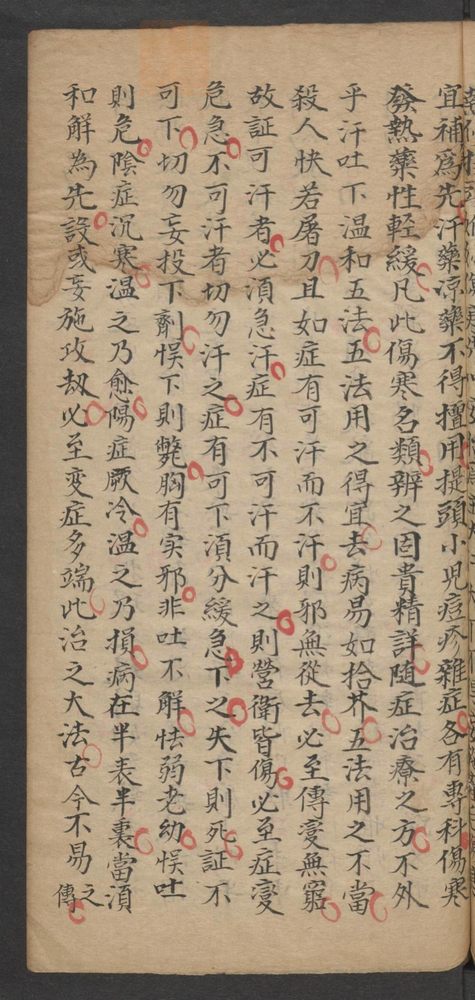 宜補為先汗藥凉藥不得擅用提頭小兒痘疹雜症各有專科傷寒
發熱藥性輕緩凡此傷寒名類辨之固貴精詳随症治療之方不外
乎汗吐下温和五法五法用之得宜去病易如拾芥五法用之不當
殺人快若屠刀且如症有可汗而不汗則邪無從去必至傳變無窮
故証可汗者必湏急汗症有不可汗而汗之則營衛皆傷必至症變
危急不可汗者切勿汗之症有可下湏分緩急下之失下則死証不
可下切勿妄投下劑悮下則斃胸有实邪非吐不解怯弱老幼悮吐
則危陰症沉寒温之乃愈陽症厥冷温之乃損病在半表半裏當湏
和解為先設或妄施攻刼必至变症多端此治之大法古今不易之傳